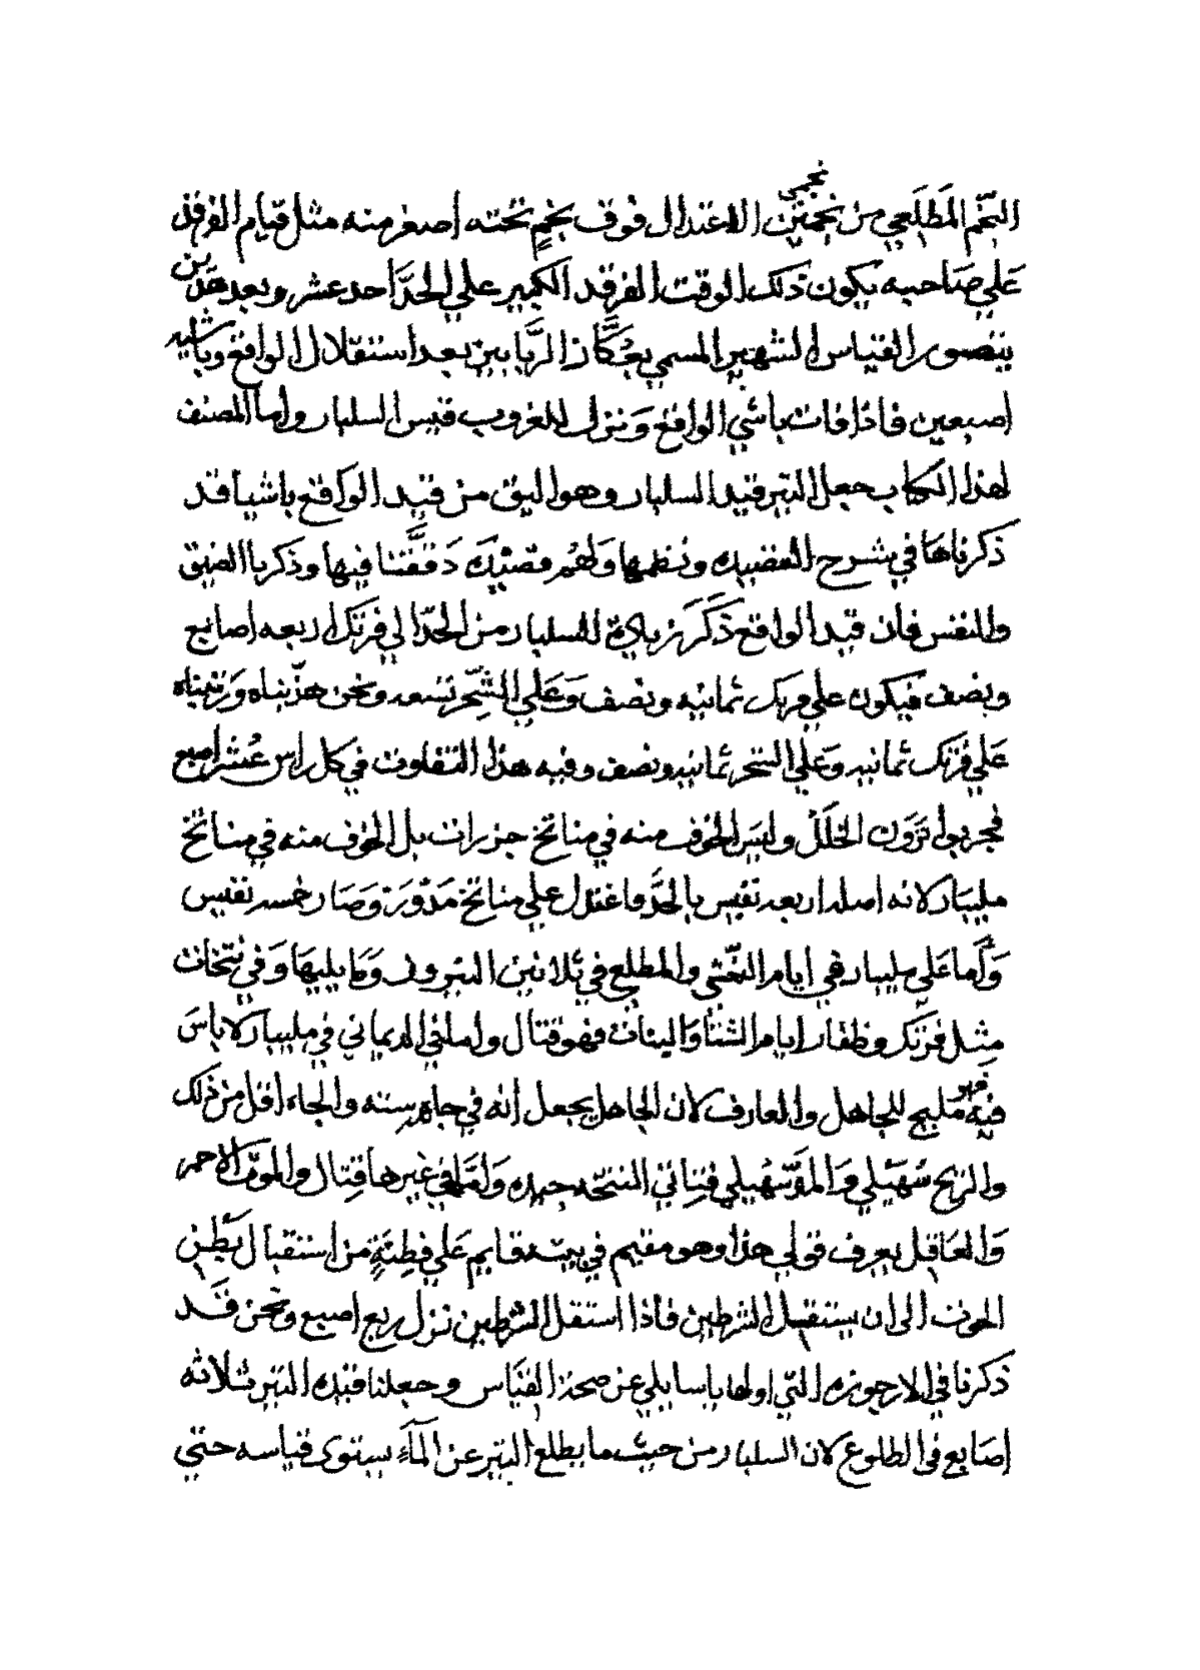 النجم المطلعي من نجمتين الاعتدال فوق نجمٍ تحته اصغر منه مثل قيام الفرقد
علي صاحبه يكون ذلك الوقت الفرقد الكبير علي الجدَّ احد عشر وبعد هذين
يتصور القياس الشهير المسمي بعُكَّاز الرُّبابين بعد استقلال الواقع وباشيه
اصبعين فاذا فات باشي الواقع وَنزل للغروب قيس السلبار واما المصنف
لهذا الكتاب جعل التير قيد السلبار وهو اليق من قيد الواقع باشيا قد
ذكرناها في شرح القصيده ونظمها وَلهُم قصيده دَققَّنا فيها وذكرنا الضيق
والنفس فان قيد الواقع ذكَرَ زيادة للسلبار من الجدّ الي فرتك اربعه اصابع
ونصف فيكون علي فرتك ثمانيه ونصف وَعَلي الشِّحر تسعه ونحن هذّبناه وَرتبناه
علي فرتك ثمانيه وَعَلي الشحر ثمانيه ونصف وفيه هذا التفاوت في كل راس عُشر اصبع
فجربوا تَرَون الخَلَلَ وليسَ الخوف منه في مناتخ جزرات بل الخوف منه في مناتخ
مليبار لانه اصله اربعه نفيس بالجدَّ ما عتدل علي مناتخ مَدْوَرَة وَصَار خمسه نفيس
وَأما على مليبار في ايام النخَّثي والمطلع في ثلاثين النيروز وَما يليهَا وَفي نتخات
مِثل فرتك وظفار ايام الشتا وَالبنات فهو قتال واما في الديماني في مليبار لا باسَ
فيه فهو مليح للجاهل والعارف لان الجاهل يجعل انه في جاه سته والجاه اقل من ذلك
والريح سُهَيلي وَالمقَّ سُهيلي فتِاتي النتخه جيده وَامَّا في غيرها قِتال والموت الاحمر
وَالعَاقل يعرف قولي هذا وهو مقيم في بيته قايم عَلي فِطنَةٍ من استقبال بَطْن
الحوت الى ان يستقبل الشرطين فاذا استقل الشرطين نزل ربع اصبع ونحن قَد
ذكرنا في الارجوزه التي اولها يا سايلي عن صحة القيَاس وجعلنا قيده التير ثلاثه
إصَابع في الطلوع لان السلبار من حيث ما يطلع التير عن المآءِ يستوى قياسه حتي